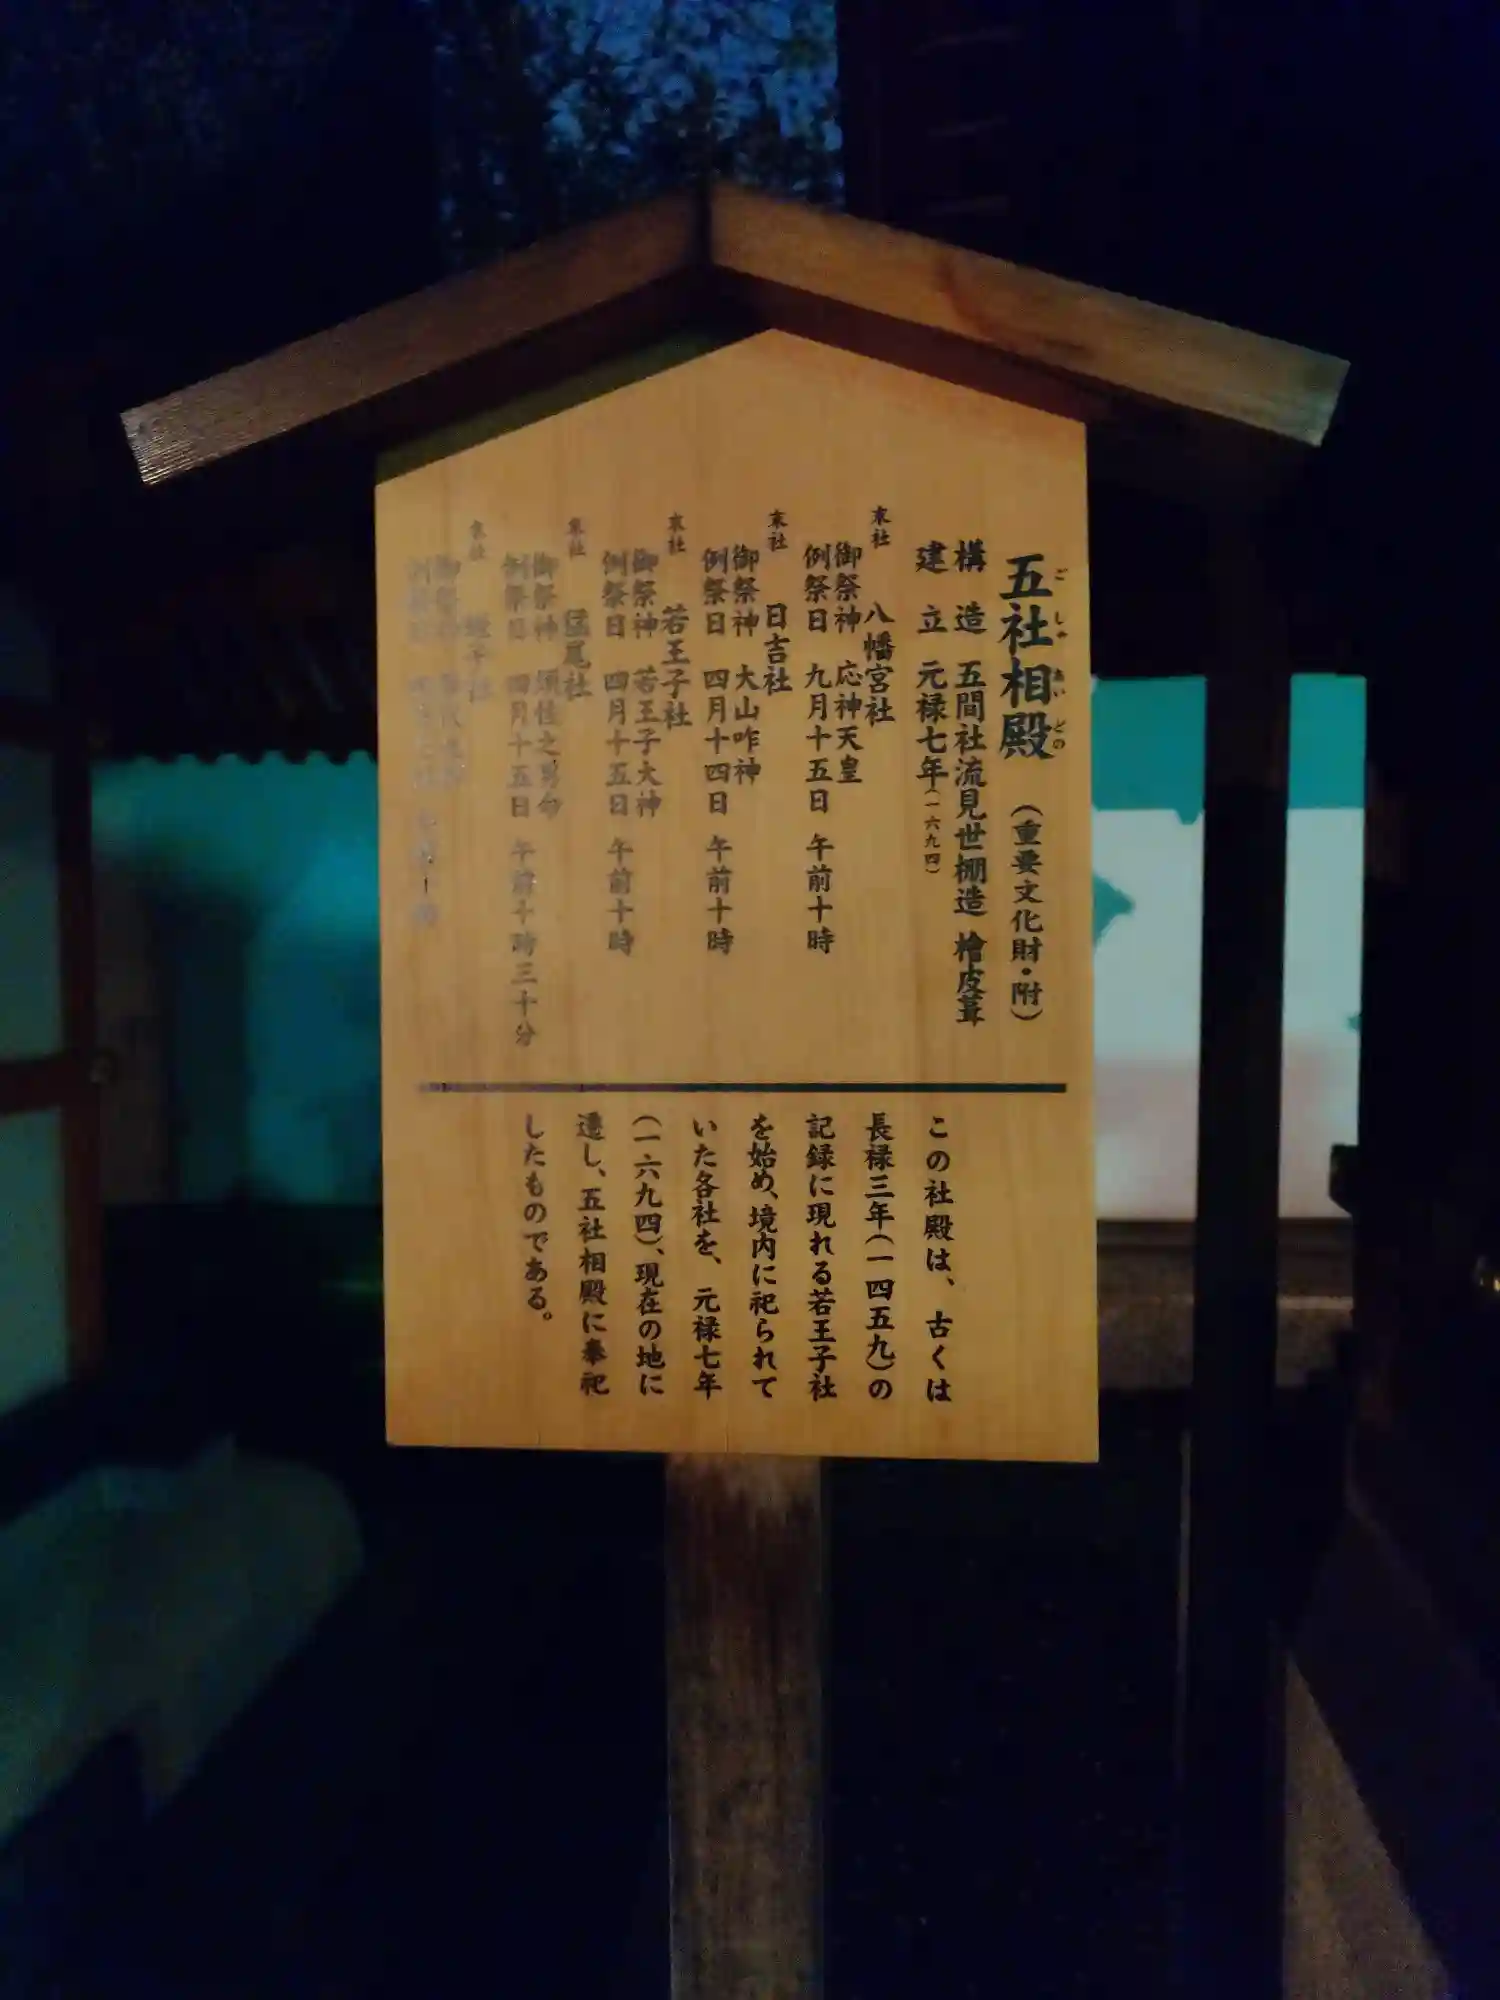 五社相殿（重要文化財・附）
ごしゃあいどの
構造 五間社流見世棚造 檜皮葺
建立 元禄七年（一六九四）
末社 八幡宮社
御祭神 応神天皇
例祭日 九月十五日 午前十時
末社 日吉社
御祭神 大山咋神
例祭日 四月十四日 午前十時
末社 若王子社
御祭神 若王子大神
例祭日 四月十五日 午前十時
末社 猛尾社
御祭神 須佐之男命
例祭日 四月十五日 午前十時三十分
末社 蛭子社
御祭神
例祭日
この社殿は、古くは
長禄三年（一四五九）の
記録に現れる若王子社
を始め、境内に祀られて
いた各社を、元禄七年
（一六九四）、現在の地に
遷し、五社相殿に奉祀
したものである。